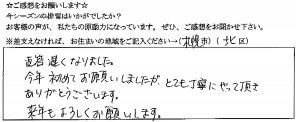 ☆ご感想をお願いします☆
今シーズンの排雪はいかがでしたか?
お客様の声が、私たちの原動力になっています。ぜひ、ご感想をお聞かせ下さい。
※差支えなければ、お住まいの地域をご記入ください→(札幌市)(北区)
返答遅くなりました。
今年初めてお願いしましたが とても丁寧にやって頂き
ありがとうございます。
来年もよろしくお願いします。